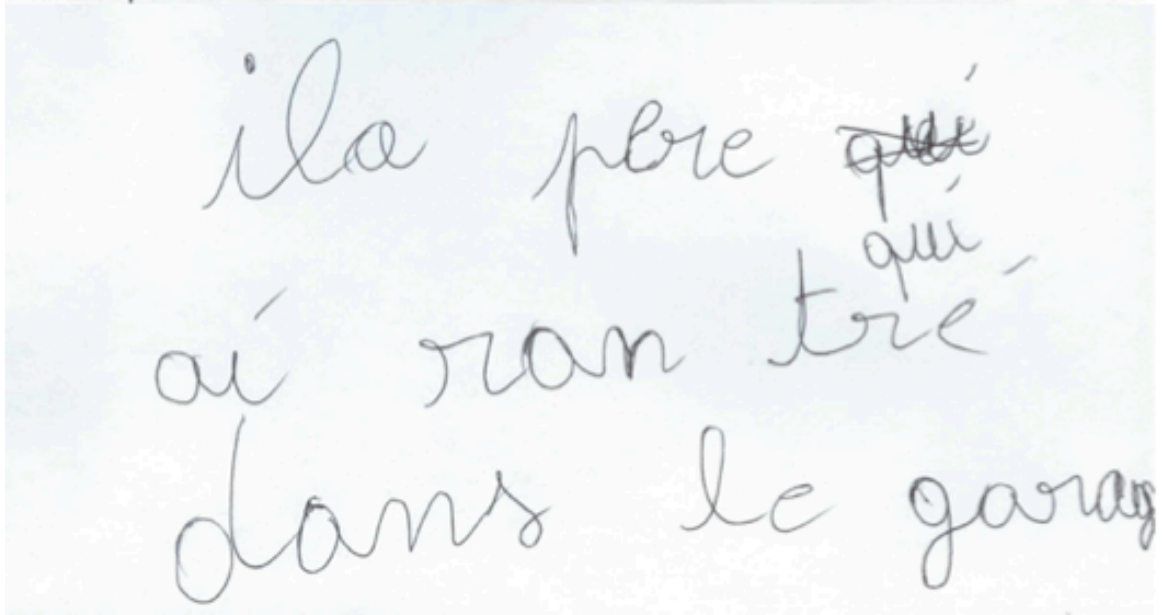 ila pere
qui
ai ran tré
dans le garag